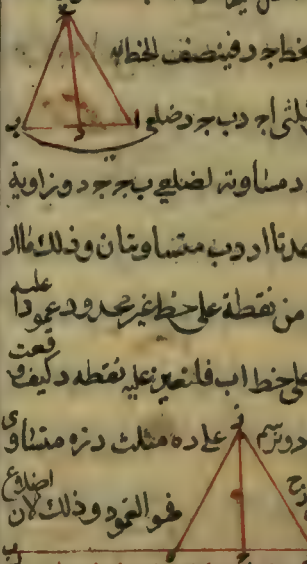 بخط جد فينصف الخط به
مثلثى اجد ب جد ضلعى
د مساوية لضلعى ب ج جد وزاوية
قاعدتا اد دب متساويتان وذلك ما ار
من نقطة على خط غير محدود عمودا عليه
على خط اب فلنعين عليه نقطه د كيف وقعت
د ونرسم على ده مثلث دزه متساوى
اضلاع فهو العمود وذلك لان